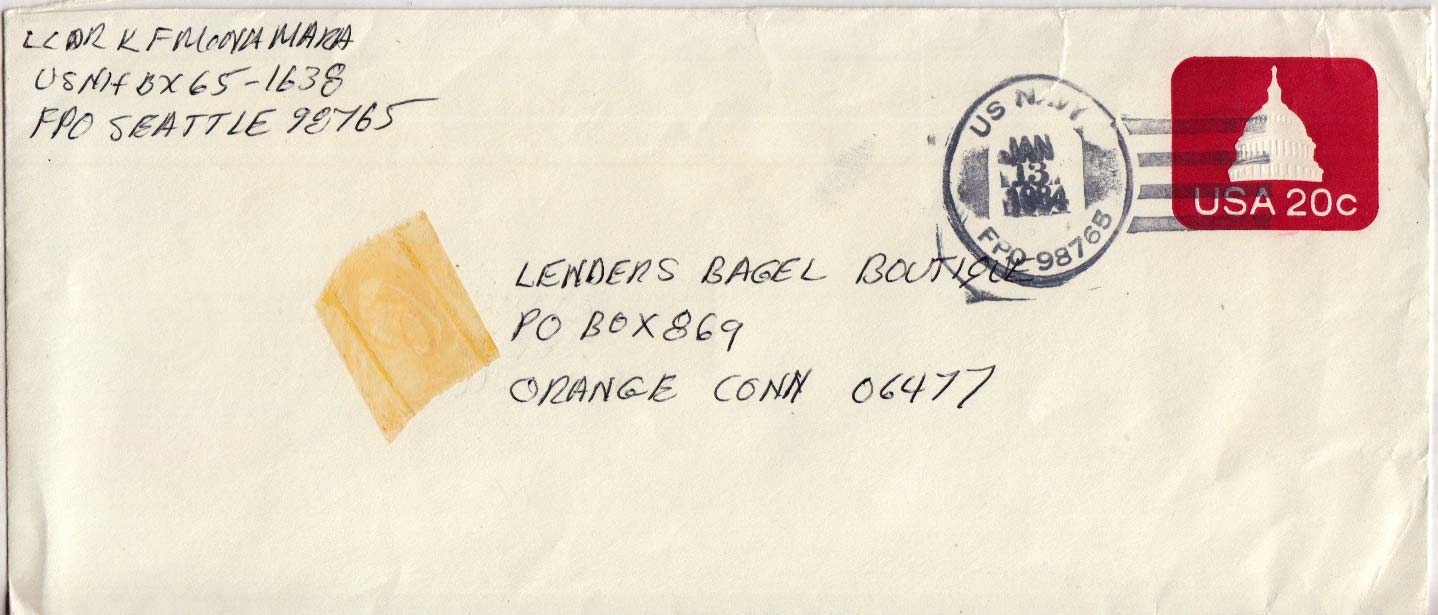 LCDR K F
USNH BX 65-1638
FPO SEATTLE 98765
US NAVY
JAN
13
1984
FPO 98765
USA 20c
LENDERS BAGEL BOUTIQUE
PO BOX 869
ORANGE CONN 06477